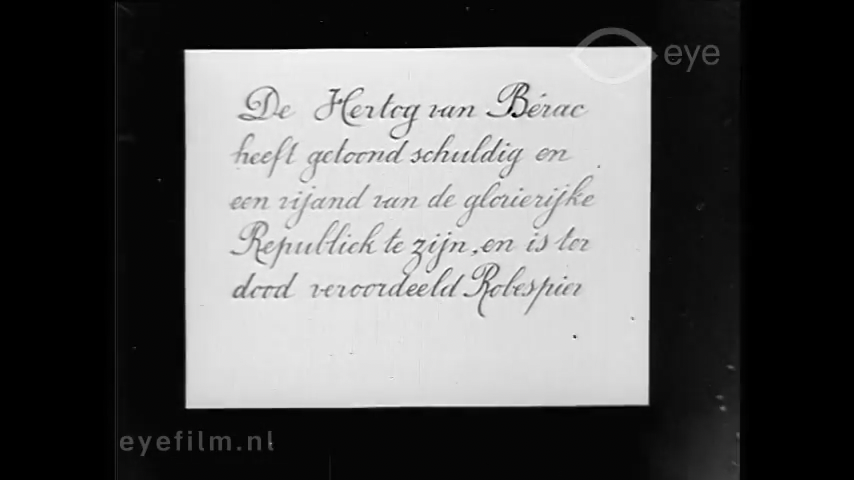 eye
De Hertog van Bérac
heeft getoond schuldig en
een vijand van de glorierijke
Republiek te zijn, en is ter
dood veroordeeld Robespier
eyefilm.nl